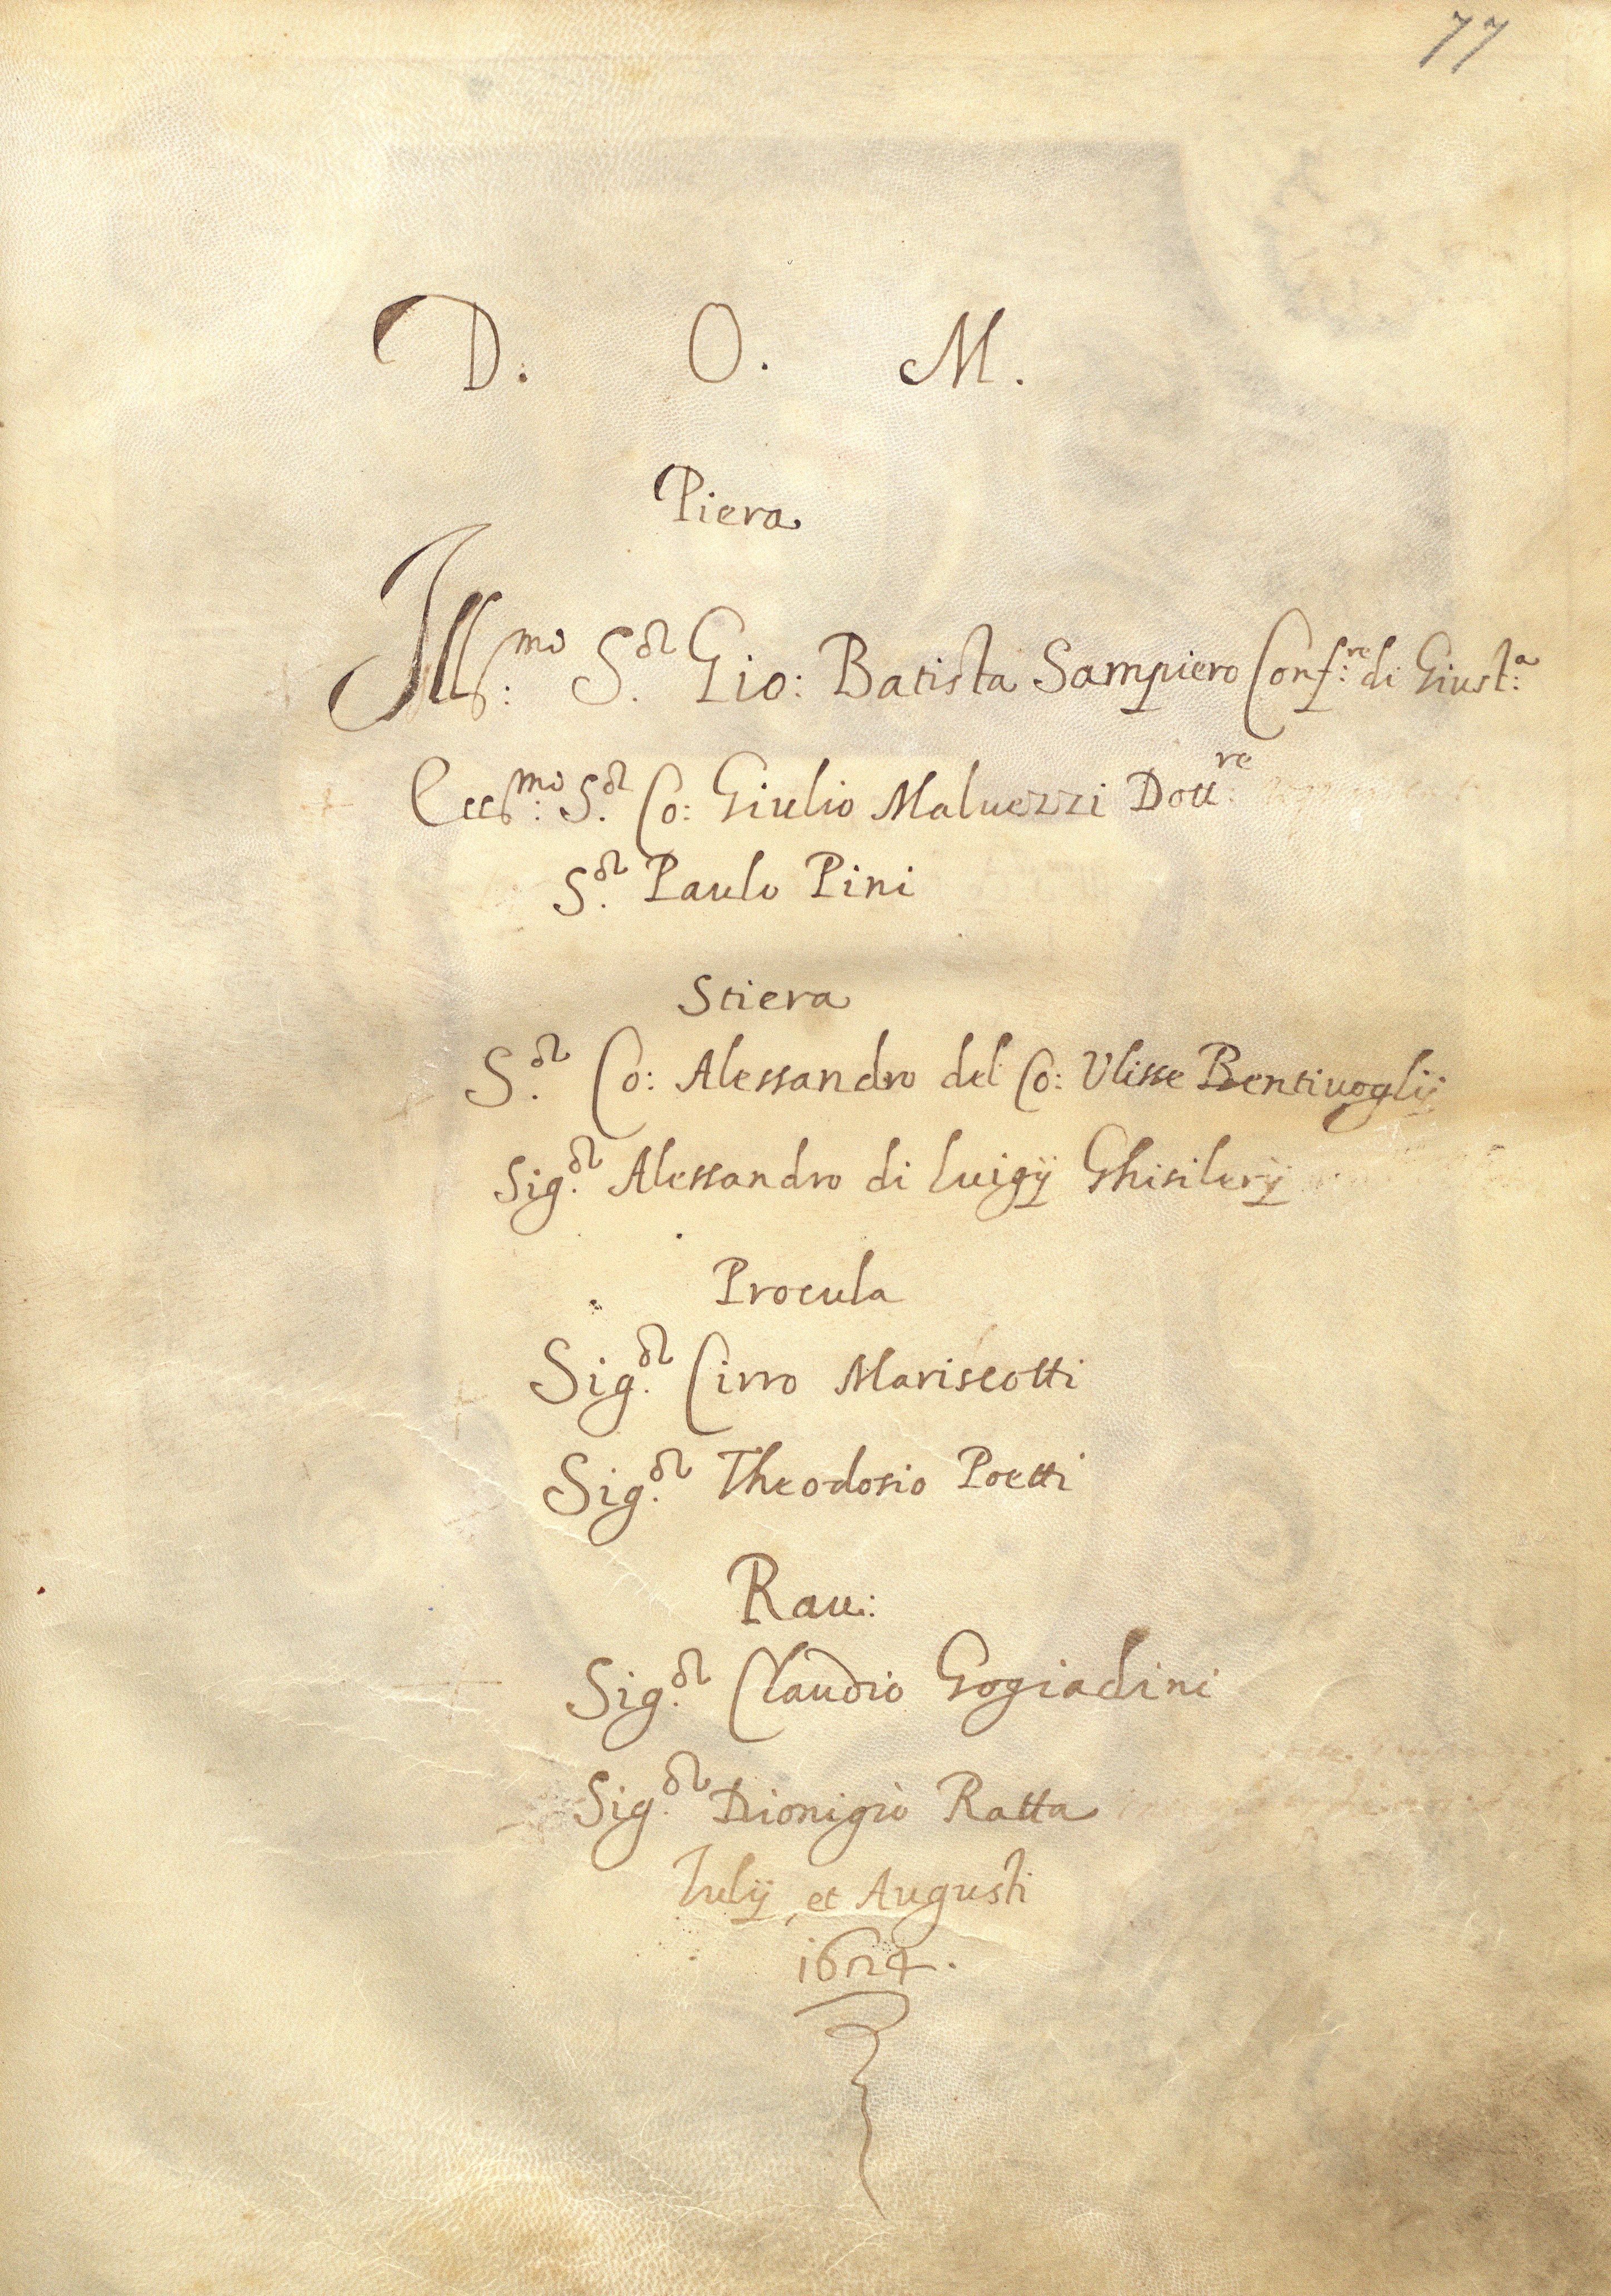 77
D. O. M.
Piera
Ill:mo S.or Gio: Batista Sampiero Conf:re di Giust:a
Ecc:mo S.or Co: Giulio Maluezzi Dott:re
S.or Paulo Pini
Stiera
S.or Co: Alessandro del Co: Vlisse Bentiuoglij
Sig.or Alessandro di Luigij Ghisilerij
Procula
Sig.or Cirro Mariscotti
Sig.or Theodosio Poetti
Rau:
Sig.or Claudio Gogiadini
Sig.or Dionigio Ratta
Iulij et Augusti
1624.